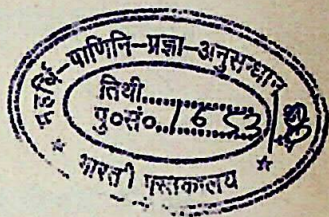 महर्षि-पाणिनि-प्रज्ञा-अनुसन्धान
तिथी..............
पु०सं०. 1653
भारती पुस्तकालय